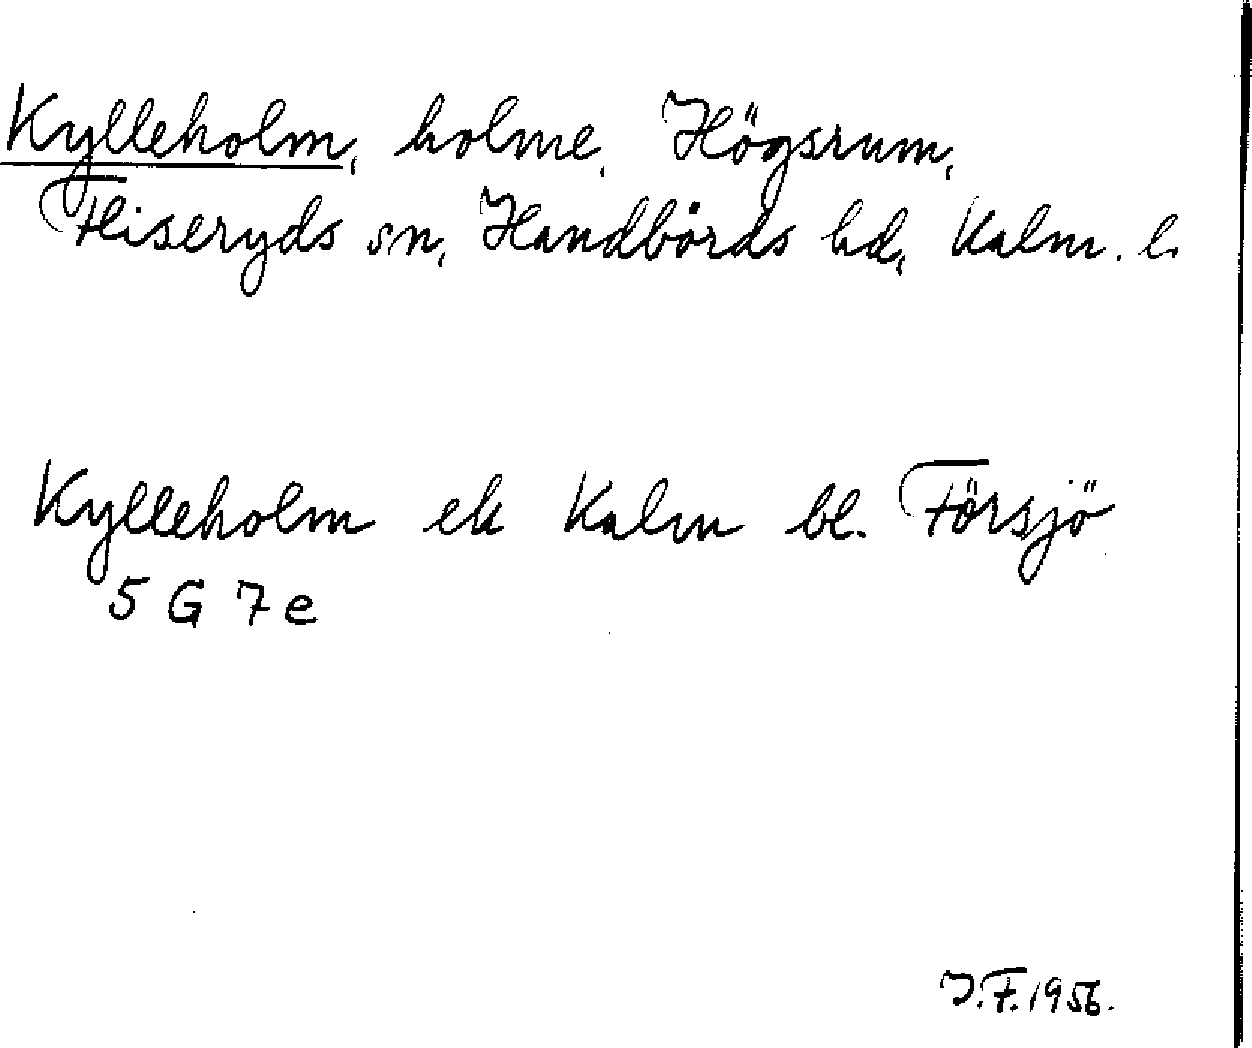 Kylleholm, holme, Högsrum,
Fliseryds sn, Handbörds hd, Kalm. l.
Kylleholm ek Kalm bl. Försjö
5 G 7 e
J.F. 1956.